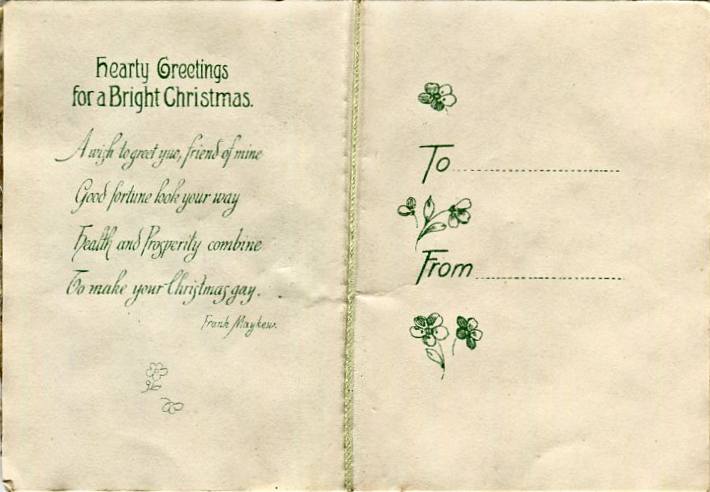 Hearty Greetings
for a Bright Christmas.
A wish to greet you, friend of mine
Good fortune look your way
Health and Prosperity combine
To make your Christmas gay.
Frank Mayhew.
To
From